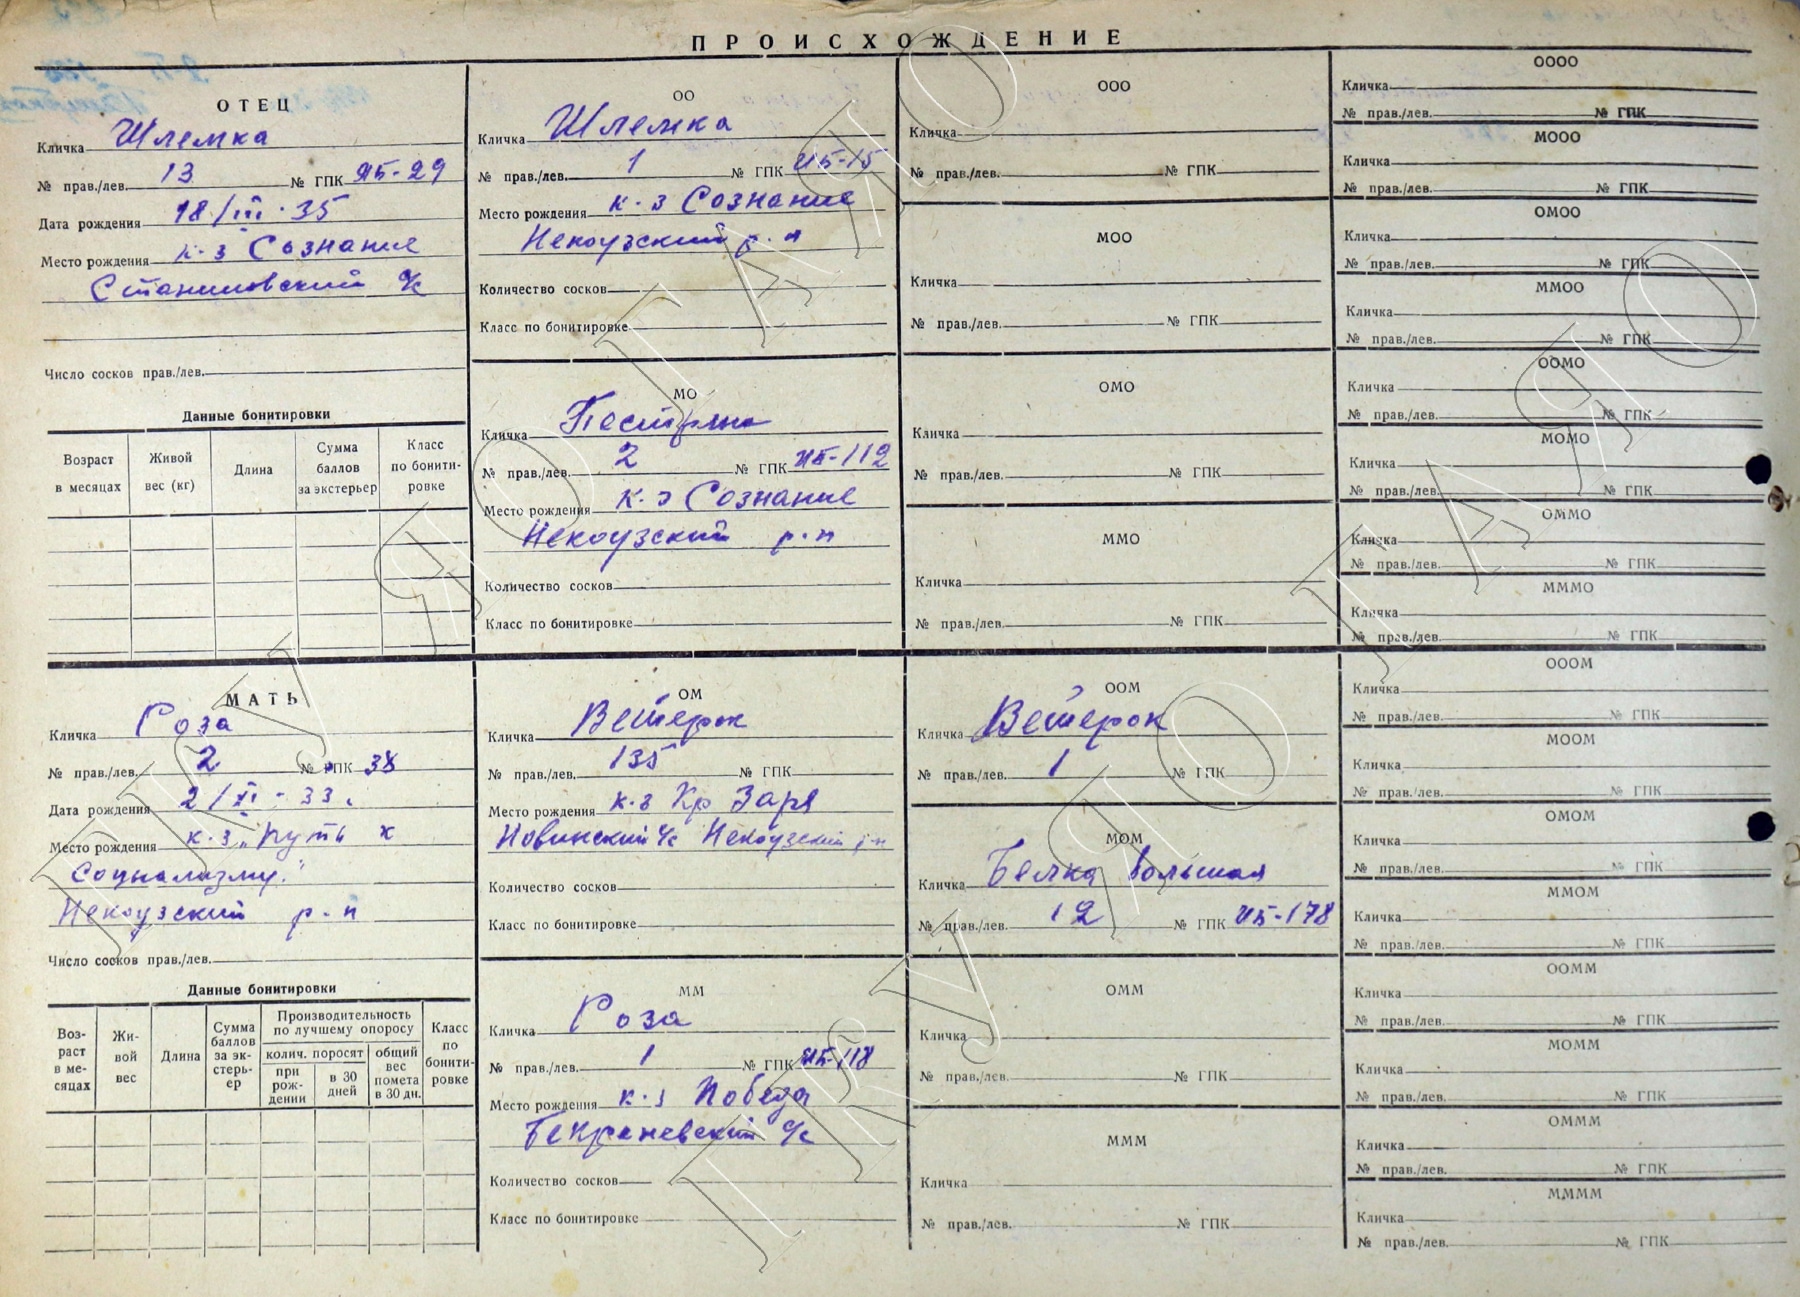 ПРОИСХОЖДЕНИЕ
ОТЕЦ
Кличка Шлемка
№ прав./лев. 13 № ГПК ЯБ-29
Дата рождения 18/III-35
Место рождения к-з Сознание
Станиловский с/с
Число сосков прав./лев.
Данные бонитировки
Возраст в месяцах
Живой вес (кг)
Длина
Сумма баллов за экстерьер
Класс по бонитировке
ОО
Кличка Шлемка
№ прав./лев. 1 № ГПК ИБ-15
Место рождения к-з Сознание
Некоузский р-н
Количество сосков
Класс по бонитировке
МО
Кличка
№ прав./лев. 2 № ГПК ИБ-112
Место рождения к-з Сознание
Некоузский р-н
Количество сосков
Класс по бонитировке
ООО
Кличка
№ прав./лев. № ГПК
МОО
Кличка
№ прав./лев. № ГПК
ОМО
Кличка
№ прав./лев. № ГПК
ММО
Кличка
№ прав./лев. № ГПК
ОООО
Кличка
№ прав./лев. № ГПК
МООО
Кличка
№ прав./лев. № ГПК
ОМОО
Кличка
№ прав./лев. № ГПК
ММОО
Кличка
№ прав./лев. № ГПК
ООМО
Кличка
№ прав./лев. № ГПК
МОМО
Кличка
№ прав./лев. № ГПК
ОММО
Кличка
№ прав./лев. № ГПК
МММО
Кличка
№ прав./лев. № ГПК
МАТЬ
Кличка Роза
№ прав./лев. 2 № ГПК 38
Дата рождения 2/VI-33.
Место рождения к-з „Путь к
Социализму"
Некоузский р-н
Число сосков прав./лев.
Данные бонитировки
Возраст в месяцах
Живой вес
Длина
Сумма баллов за экстерьер
Производительность по лучшему опоросу
колич. поросят
при рождении
в 30 дней
общий вес помета в 30 дн.
Класс по бонитировке
ОМ
Кличка Ветерок
№ прав./лев. 135 № ГПК
Место рождения к-з Кр Заря
Новинский с/с Некоузский р-н
Количество сосков
Класс по бонитировке
ММ
Кличка Роза
№ прав./лев. 1 № ГПК ИБ-118
Место рождения к-з Победа
с/с
Количество сосков
Класс по бонитировке
ООМ
Кличка Ветерок
№ прав./лев. 1 № ГПК
МОМ
Кличка Белка большая
№ прав./лев. 12 № ГПК ИБ-178
ОММ
Кличка
№ прав./лев. № ГПК
МММ
Кличка
№ прав./лев. № ГПК
ОООМ
Кличка
№ прав./лев. № ГПК
МООМ
Кличка
№ прав./лев. № ГПК
ОМОМ
Кличка
№ прав./лев. № ГПК
ММОМ
Кличка
№ прав./лев. № ГПК
ООММ
Кличка
№ прав./лев. № ГПК
МОММ
Кличка
№ прав./лев. № ГПК
ОМММ
Кличка
№ прав./лев. № ГПК
ММММ
Кличка
№ прав./лев. № ГПК
ГКУ ЯО ГАЯО
ГКУ ЯО ГАЯО